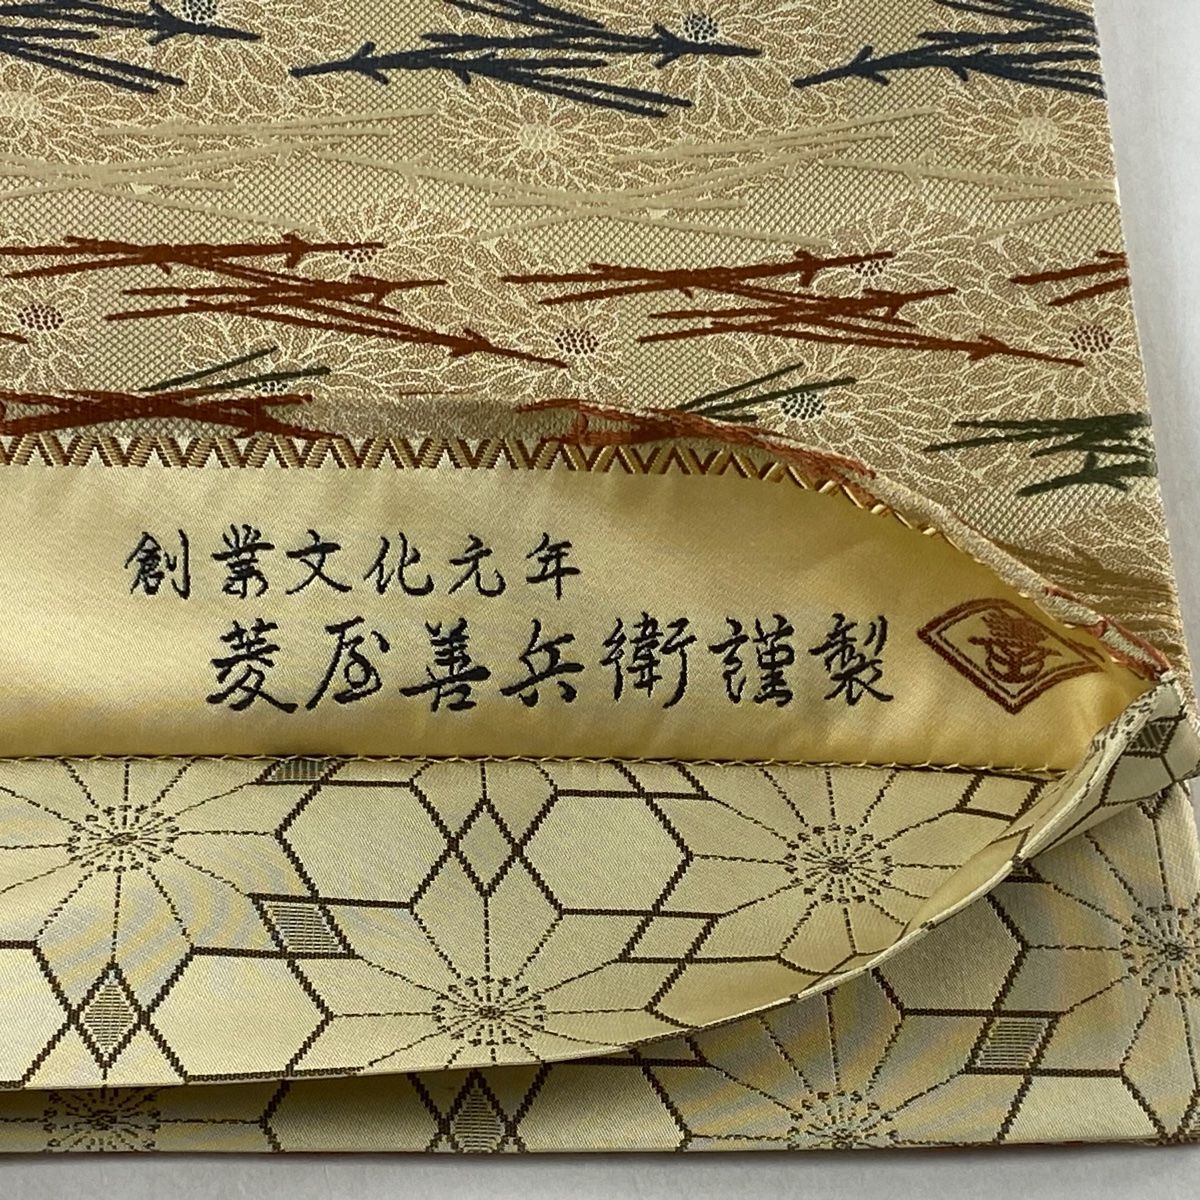 創業文化元年
菱屋善兵衛謹製